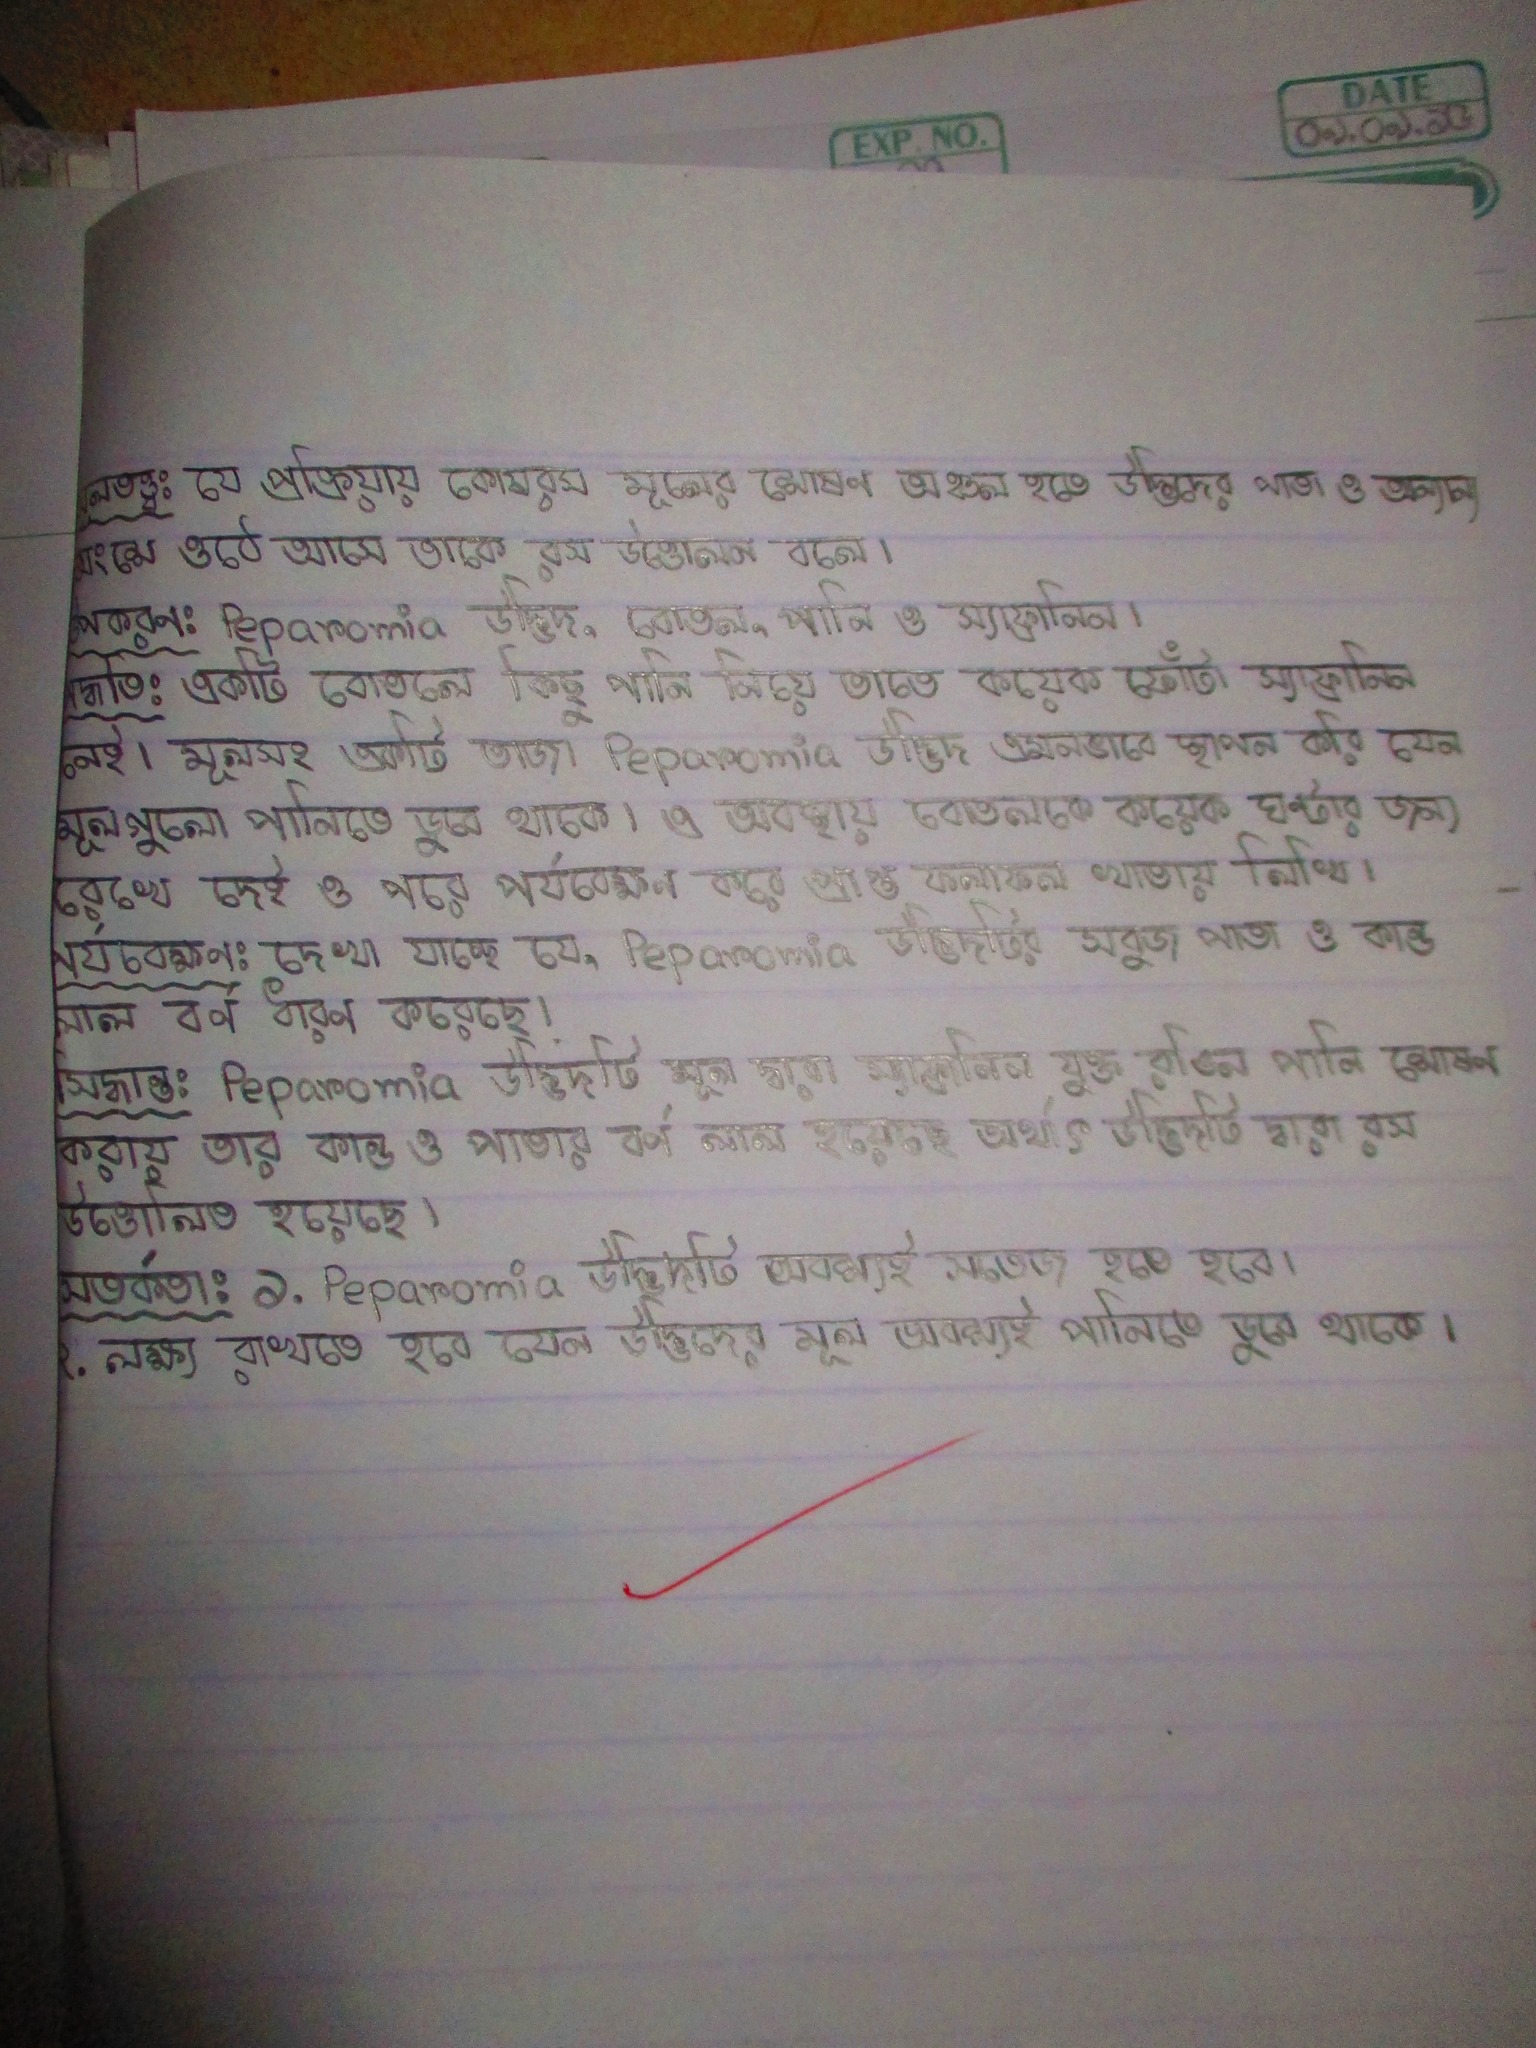 DATE
০৯.০৯.২৫
EXP. NO.
মূলতত্ত্ব: যে প্রক্রিয়ায় কোষরস মূলের শোষণ অঞ্চল হতে উদ্ভিদের পাতা ও অন্যান্য
অংশে ওঠে আসে তাকে রস উত্তোলন বলে।
উপকরণ: Peparomia উদ্ভিদ, বোতল, পানি ও স্যাফ্রানিন।
পদ্ধতি: একটি বোতলে কিছু পানি নিয়ে তাতে কয়েক ফোঁটা স্যাফ্রানিন
নেই। মূলসহ একটি তাজা Peparomia উদ্ভিদ এমনভাবে স্থাপন করি যেন
মূলগুলো পানিতে ডুবে থাকে। এ অবস্থায় বোতলকে কয়েক ঘণ্টার জন্য
রেখে দেই ও পরে পর্যবেক্ষণ করে প্রাপ্ত ফলাফল খাতায় লিখি।
পর্যবেক্ষণ: দেখা যাচ্ছে যে, Peparomia উদ্ভিদটির সবুজ পাতা ও কান্ড
লাল বর্ণ ধারণ করেছে।
সিদ্ধান্ত: Peparomia উদ্ভিদটি মূল দ্বারা স্যাফ্রানিন যুক্ত রঙিন পানি শোষণ
করায় তার কান্ড ও পাতার বর্ণ লাল হয়েছে অর্থাৎ উদ্ভিদটি দ্বারা রস
উত্তোলিত হয়েছে।
সতর্কতা: ১. Peparomia উদ্ভিদটি অবশ্যই সতেজ হতে হবে।
২. লক্ষ্য রাখতে হবে যেন উদ্ভিদের মূল অবশ্যই পানিতে ডুবে থাকে।